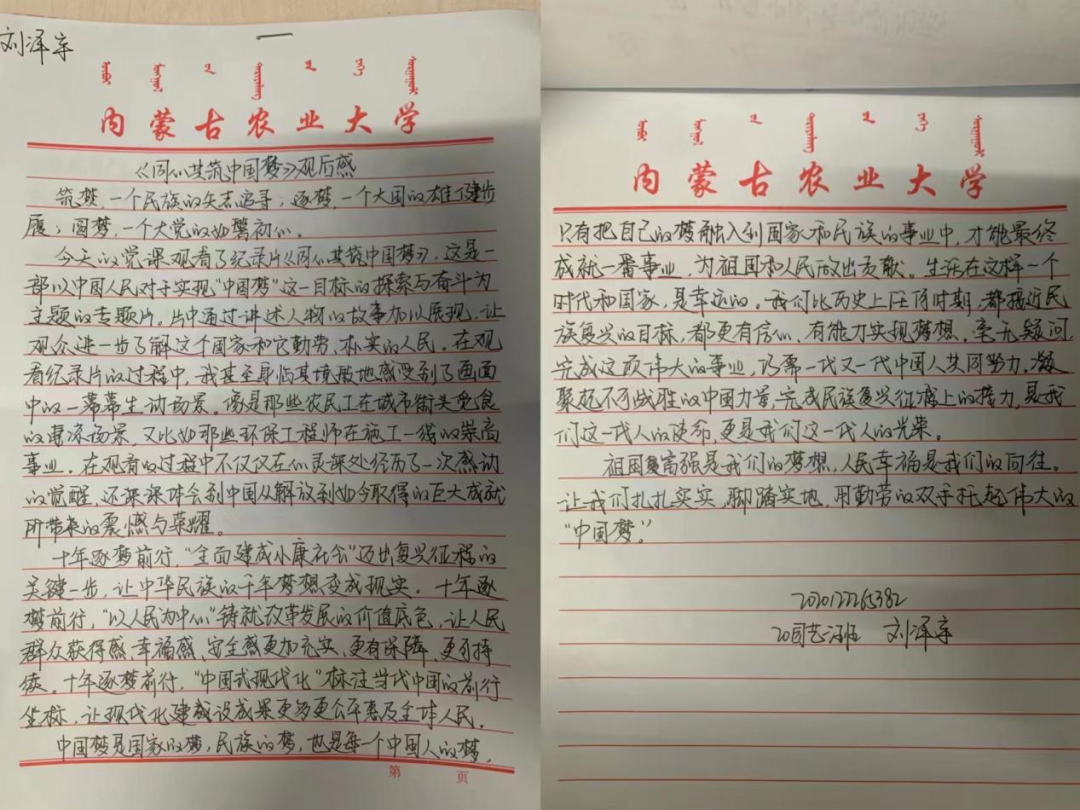 刘泽宇
内蒙古农业大学
《同心共筑中国梦》观后感
筑梦,一个民族的矢志追寻;逐梦,一个大国的雄健步
履;圆梦,一个大党的如磐初心。
今天的党课观看了纪录片《同心共筑中国梦》,这是一
部以中国人民对于实现“中国梦”这一目标的探索与奋斗为
主题的专题片。片中通过讲述人物的故事加以展现,让
观众进一步了解这个国家和它勤劳、朴实的人民。在观
看纪录片的过程中,我甚至身临其境般地感受到了画面
中的一幕幕生动场景。像是那些农民工在城市街头觅食
的凄凉场景,又比如那些环保工程师在施工一线的崇高
事业。在观看的过程中不仅仅在心灵深处经历了一次感动
的觉醒,还深深体会到中国从解放到如今取得的巨大成就
所带来的震憾与荣耀。
十年逐梦前行,“全面建成小康社会”迈出复兴征程的
关键一步,让中华民族的千年梦想变成现实。十年逐
梦前行,“以人民为中心”铸就改革发展的价值底色,让人民
群众获得感、幸福感、安全感更加充实、更有保障、更可持
续。十年逐梦前行,“中国式现代化”标注当代中国的前行
坐标,让现代化建设成果更多更公平惠及全体人民。
中国梦是国家的梦,民族的梦,也是每一个中国人的梦。
第 页
内蒙古农业大学
只有把自己的梦融入到国家和民族的事业中,才能最终
成就一番事业,为祖国和人民做出贡献。生活在这样一个
时代和国家,是幸运的。我们比历史上任何时期,都接近民
族复兴的目标,都更有信心、有能力实现梦想。毫无疑问,
完成这项伟大的事业,仍需一代又一代中国人共同努力。凝
聚起不可战胜的中国力量,完成民族复兴征程上的接力,是我
们这一代人的使命,更是我们这一代人的光荣。
祖国富强是我们的梦想,人民幸福是我们的向往。
让我们扎扎实实,脚踏实地,用勤劳的双手托起伟大的
“中国梦”。
刘泽宇